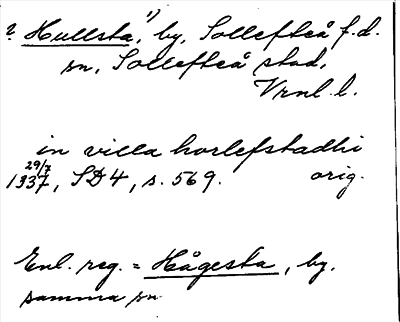 ? Hullsta,¹⁾ by, Sollefteå f.d.
sn, Sollefteå stad,
Vrnl. l.
in villa horlefstadhi
29/7
1337, SD4, s. 569. orig.
Enl. reg. = Hågesta, by,
samma sn